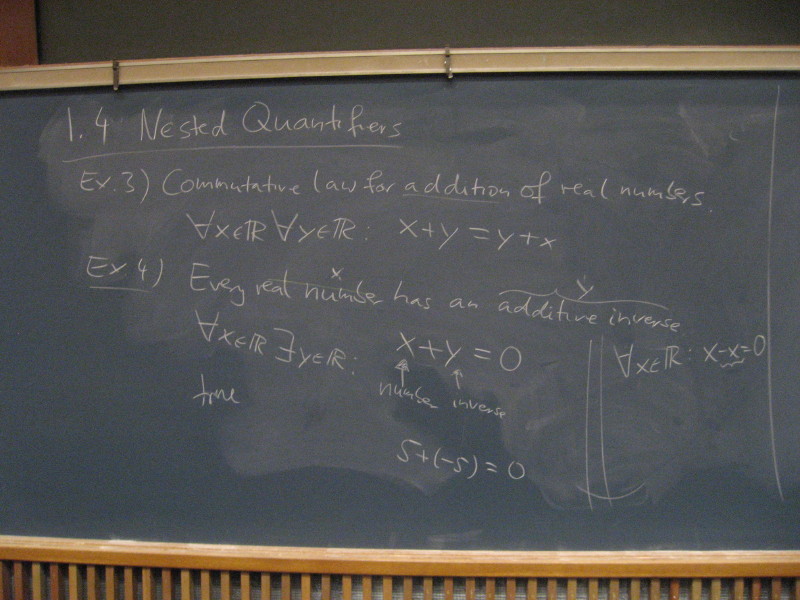 1.4 Nested Quantifiers
Ex. 3) Commutative law for addition of real numbers.
∀x∈ℝ ∀y∈ℝ: x+y=y+x
x
y
Ex 4) Every real number has an additive inverse
∀x∈ℝ ∃y∈ℝ: x+y=0
∀x∈ℝ: x-x=0
number inverse
true
5+(-5)=0